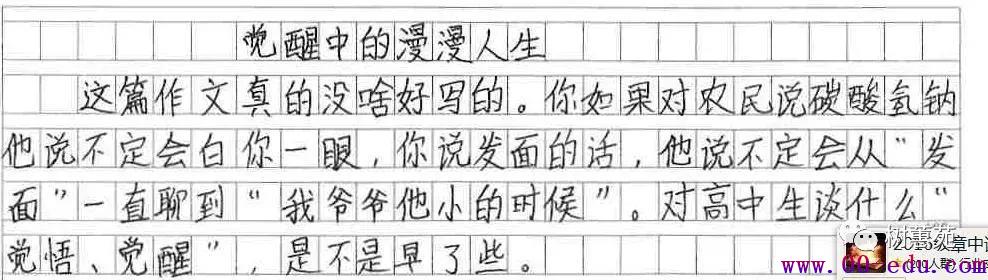 觉醒中的漫漫人生
这篇作文真的没啥好写的。你如果对农民说碳酸氢钠
他说不定会白你一眼，你说发面的话，他说不定会从“发
面”一直聊到“我爷爷他小的时候”。对高中生谈什么“
觉悟、觉醒”，是不是早了些。
树蕙苑